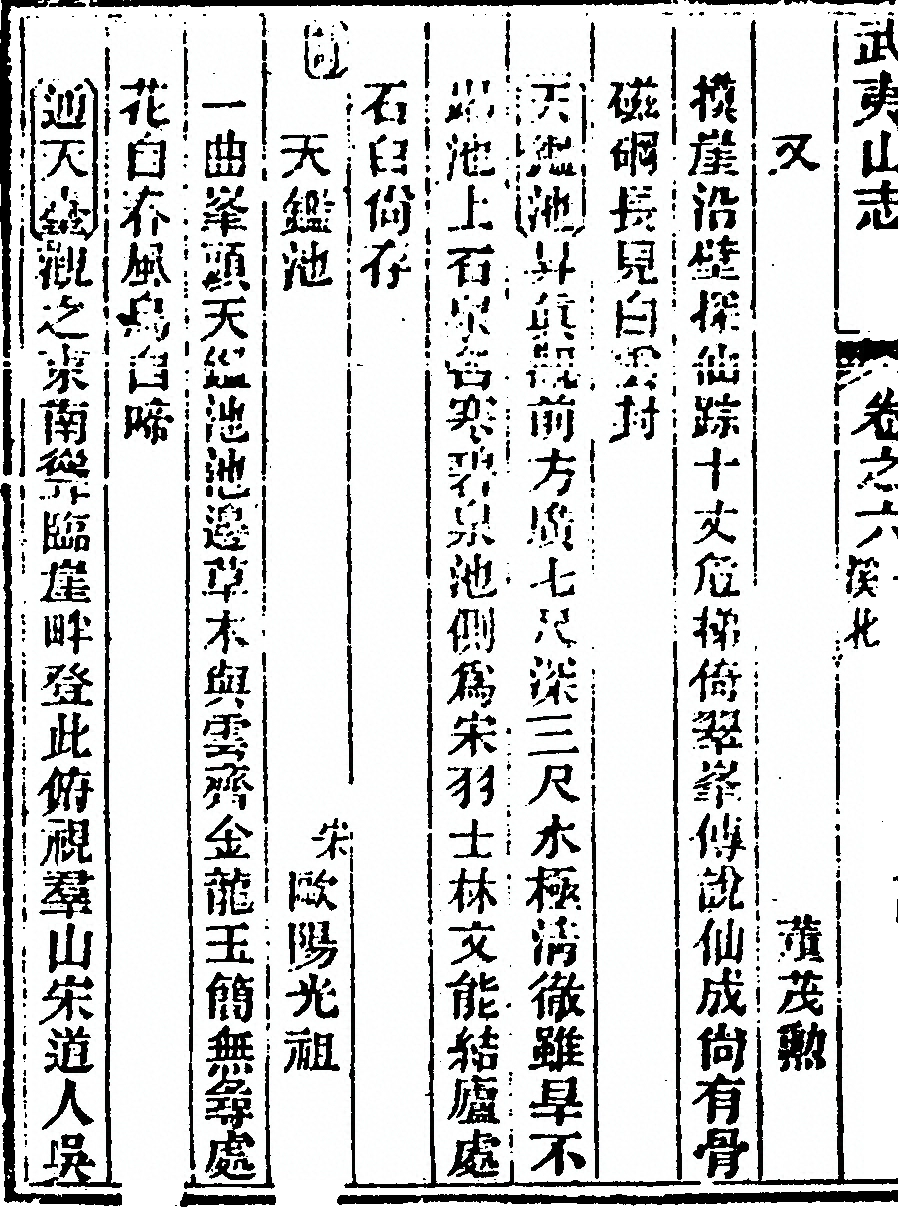 武夷山志 卷之六 溪北
又 董茂勲
撲崖沿壁探仙踪十丈危梯倚翠峯傳說仙成尙有骨
磁碙長見白雲封
天鑑池昇眞觀前方廣七尺深三尺水極淸徹雖旱不
涸池上石泉名寒碧泉池側爲宋羽士林文能結廬處
石臼尙存
天鑑池 宋歐陽光祖
一曲峯頭天鑑池池邊草木與雲齊金龍玉簡無尋處
花自春風鳥自啼
通天臺觀之東南巒臨崖畔登此俯視羣山宋道人吳